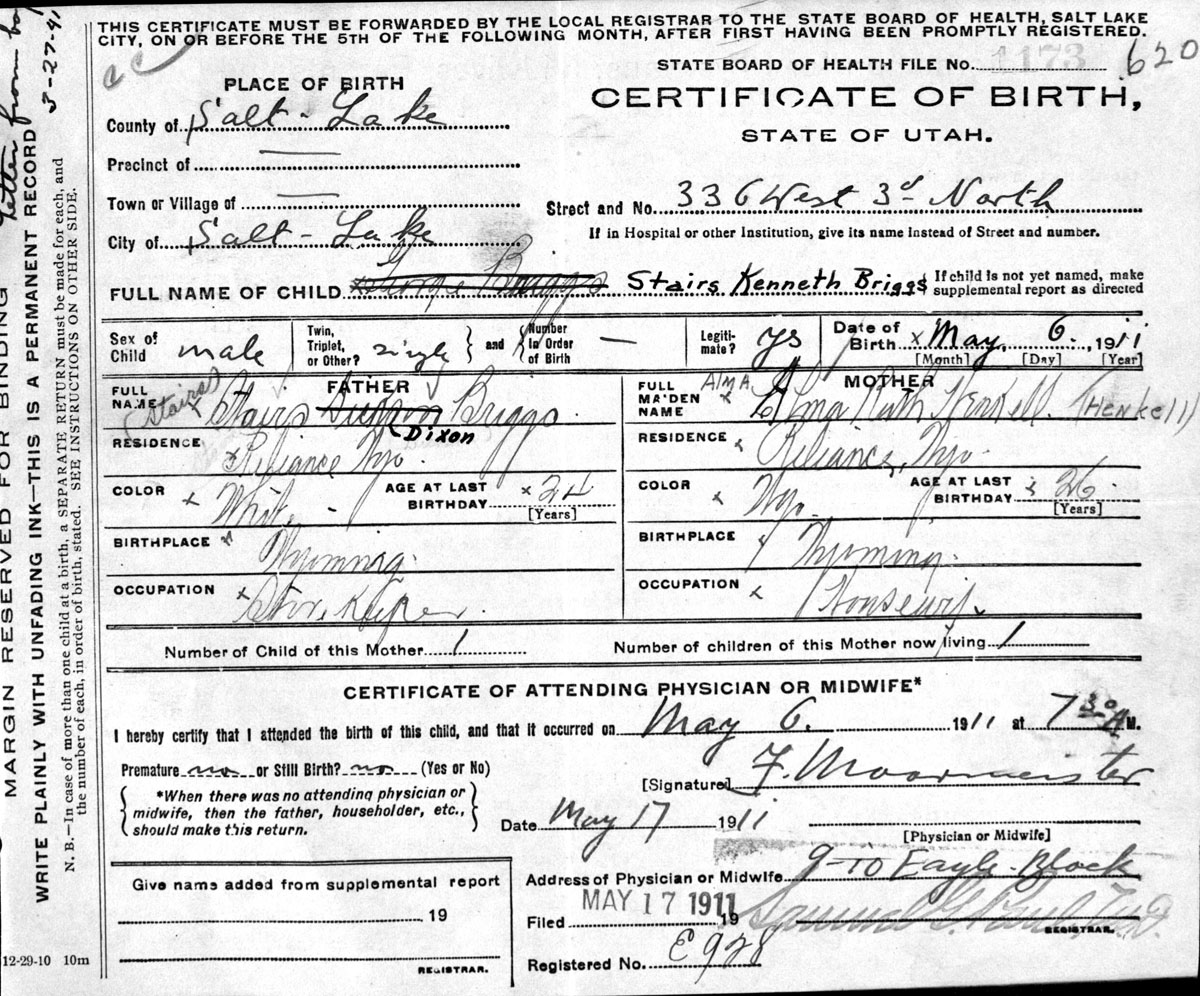 THIS CERTIFICATE MUST BE FORWARDED BY THE LOCAL REGISTRAR TO THE STATE BOARD OF HEALTH, SALT LAKE
CITY, ON OR BEFORE THE 5TH OF THE FOLLOWING MONTH, AFTER FIRST HAVING BEEN PROMPTLY REGISTERED.
STATE BOARD OF HEALTH FILE No. 1173 620
PLACE OF BIRTH
CERTIFICATE OF BIRTH,
STATE OF UTAH.
County of Salt-Lake
Precinct of —
Town or Village of —
Street and No. 336 West 3d North
City of Salt-Lake
If in Hospital or other Institution, give its name instead of Street and number.
FULL NAME OF CHILD George Briggs Stairs Kenneth Briggs
If child is not yet named, make
supplemental report as directed
Sex of Child male
Twin, Triplet, or Other? single and Number in Order of Birth —
Legiti-mate? ys
Date of Birth x May 6. , 1911
[Month] [Day] [Year]
FATHER
FULL NAME (Stairs) x Stairs Briggs
Dixon
RESIDENCE x Reliance Wyo.
COLOR x Whit.
AGE AT LAST BIRTHDAY x 24
[Years]
BIRTHPLACE x Wyoming
OCCUPATION x Stor. Keeper.
MOTHER
FULL MAIDEN NAME AlmA x Elma Ruth Henkell (Henkell)
RESIDENCE x Reliance, Wyo.
COLOR x Wyo.
AGE AT LAST BIRTHDAY x 26
[Years]
BIRTHPLACE x Wyoming.
OCCUPATION x Housewif.
Number of Child of this Mother 1
Number of children of this Mother now living 1
CERTIFICATE OF ATTENDING PHYSICIAN OR MIDWIFE*
I hereby certify that I attended the birth of this child, and that it occurred on May 6. 1911 at 7 30 A M.
Premature no or Still Birth? no (Yes or No)
[Signature] F. Moormeister
*When there was no attending physician or
midwife, then the father, householder, etc.,
should make this return.
Date May 17 1911
[Physician or Midwife]
Address of Physician or Midwife 9-10 Eagle-Block
Give name added from supplemental report
19
REGISTRAR.
Filed MAY 17 1911 19 Samuel G. Paul, M.D.
REGISTRAR.
Registered No. E928
12-29-10 10m
MARGIN RESERVED FOR BINDING
Letter from
WRITE PLAINLY WITH UNFADING INK—THIS IS A PERMANENT RECORD 3-27-41
N. B.—In case of more than one child at a birth, a SEPARATE RETURN must be made for each, and
the number of each, in order of birth, stated. SEE INSTRUCTIONS ON OTHER SIDE.